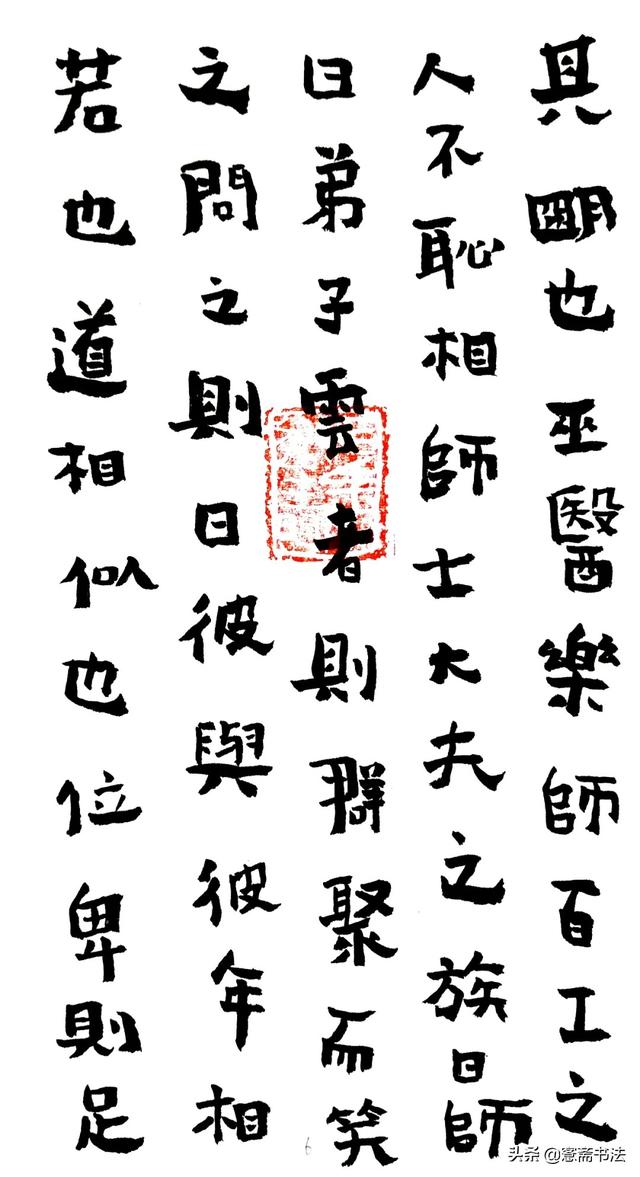 其朙也巫醫樂師百工之
人不恥相師士大夫之族曰師
曰弟子雲者則群聚而笑
之問之則曰彼與彼年相
若也道相似也位卑則足
6
头条 @斋书法